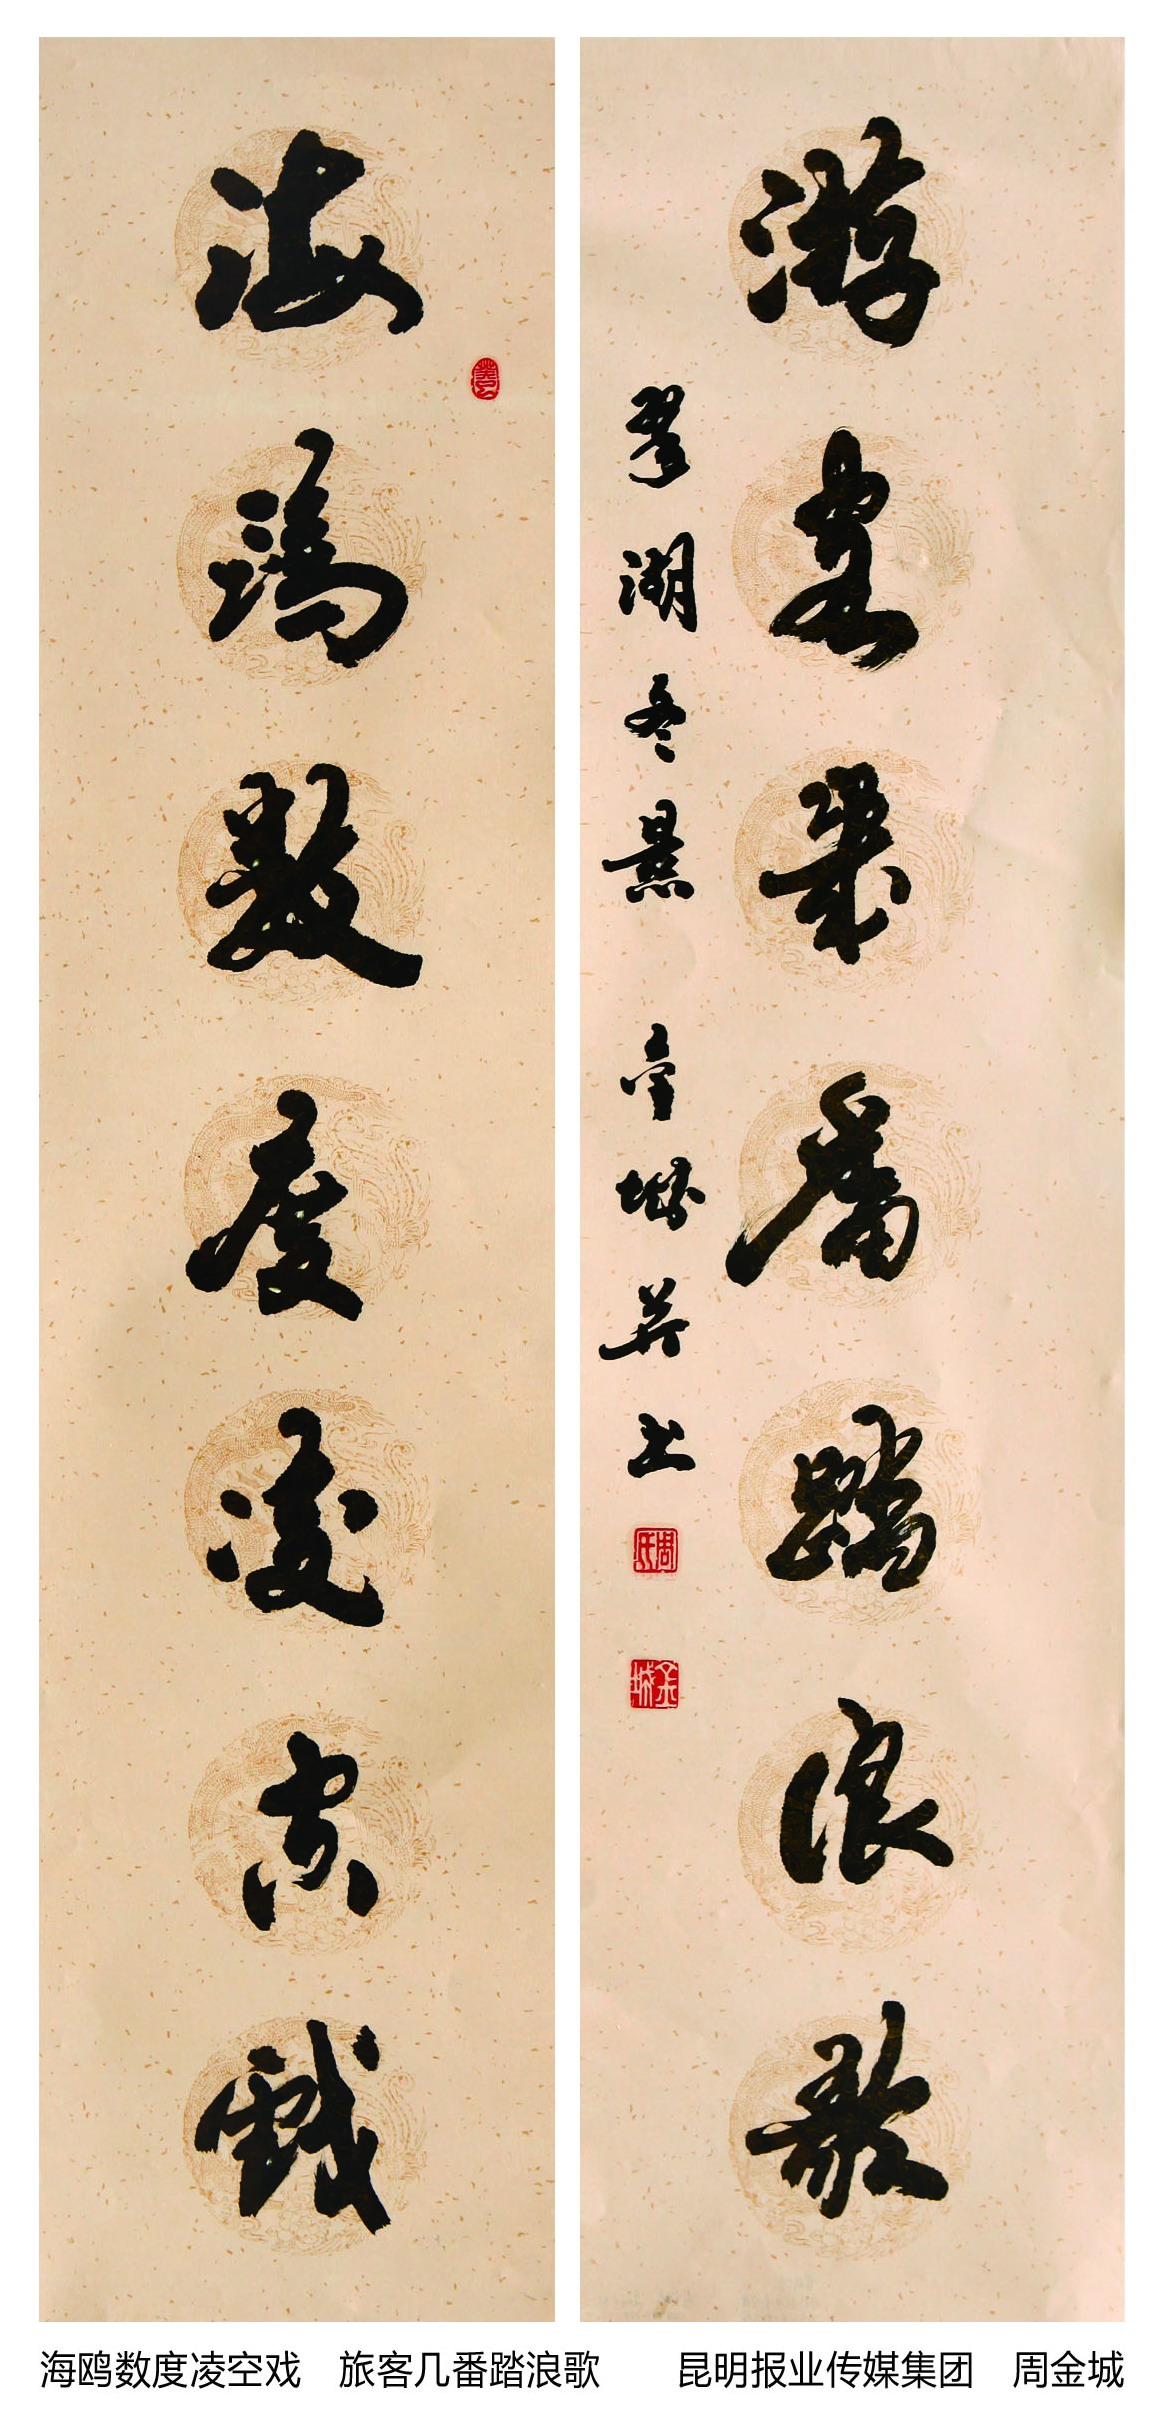 海鸥数度凌空戏
游客几番踏浪歌
翠湖冬景 金城并书
周氏
金城
海鸥数度凌空戏 旅客几番踏浪歌 昆明报业传媒集团 周金城